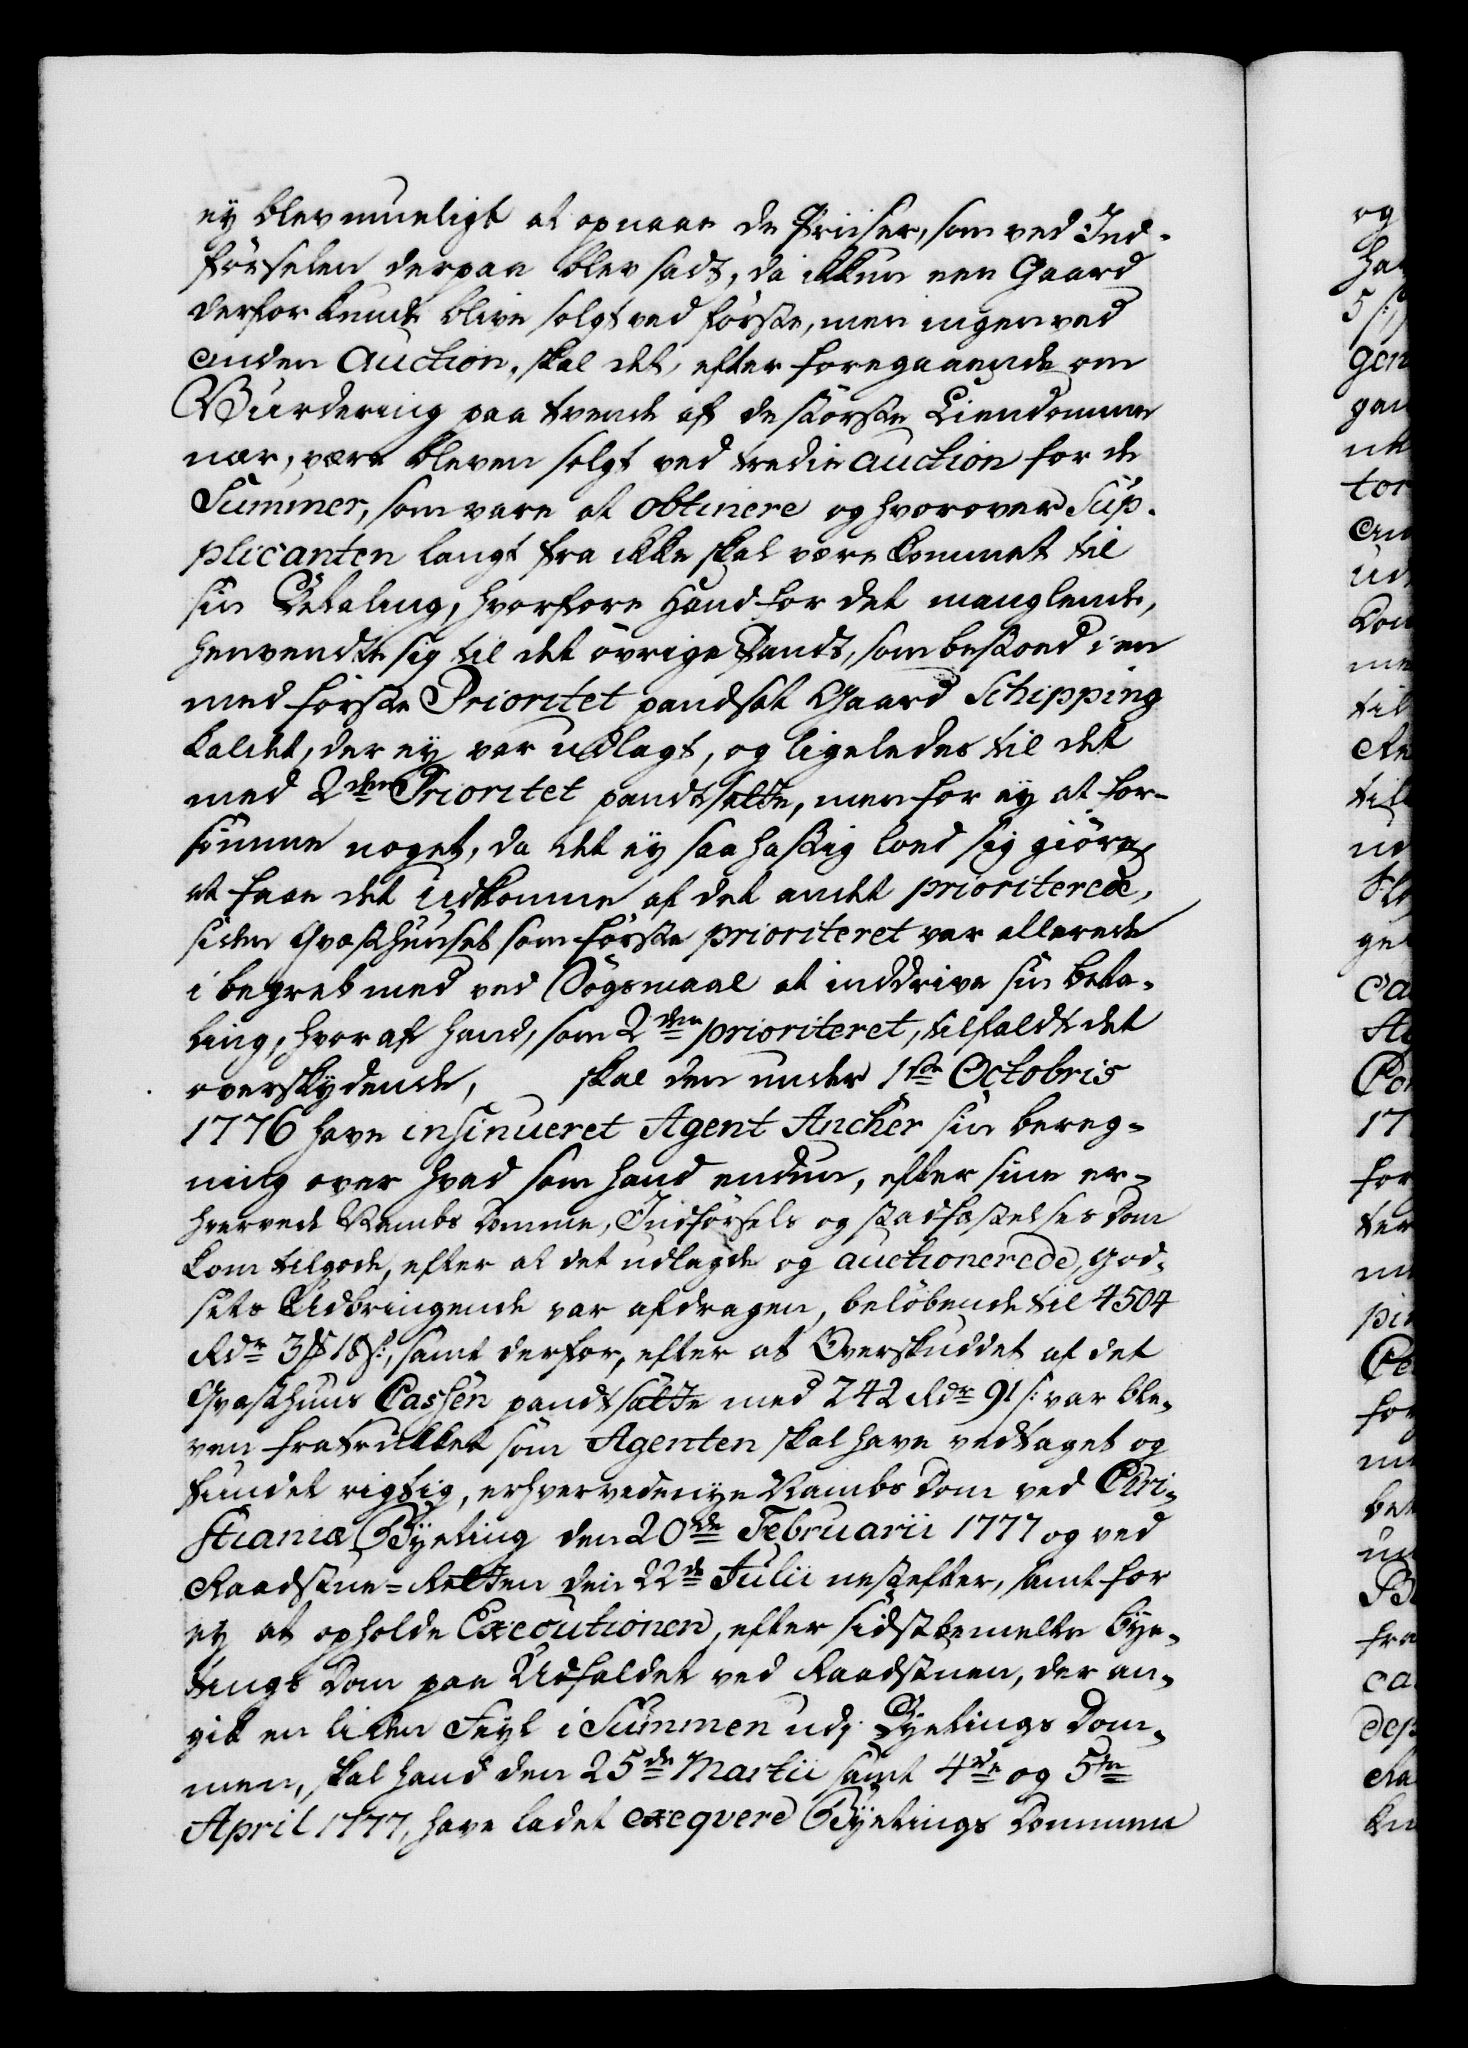 ey blev mueligt at opnaae de Priiser, som ved Ind-
förselen derpaa blev sadt, da ikkun een Gaard
derfor kunde blive solgt ved förste, men ingen ved
anden Auction, skal det, efter foregaaende om
Vurdering paa tvende af de störste Eiendomme
nær, være bleven solgt ved tredie auction for de
Summer, som vare at obtinere og hvorover Sup-
plicanten langt fra ikke skal være kommet til
sin Betaling, hvorfore hand for det manglende,
henvendte sig til det övrige Pandt, som bestoed i en
med förste Prioritet pandsat Gaard Schipping
kaldet, der ey var udlagt, og ligeledes til det
med 2den Prioritet pandtsatte, men for ey at for-
sömme noget, da det ey saa hastig loed sig giöre
at faae det Udkomme af det andet prioriterede,
siden Qvæsthuuset som förste prioriteret var allerede
i begreb med ved Sögsmaal at inddrive sin beta-
ling, hvoraf hand, som 2den prioriteret, tilfaldt det
overskydende, skal den under 1ste Octobris
1776 have insinueret Agent Ancher sin bereg-
ning over hvad som hand endnu, efter sine er-
hvervede Nambs Domme, Indförsels og stadfæstelses Dom
kom tilgode, efter at det udlagde og auctionerede God-
sets Udbringende var afdragen, belöbende til 4504
Rdr 3 ß 18 s:, samt derfor, efter at Overskuddet af det
Qvæsthuus Cassen pandtsatte med 242 Rdr 91 s: var ble-
ven fratrukket som Agenten skal have vedtaget og
fundet rigtig, erhvervede nye Nambs Dom ved Chri-
stianiæ Byeting den 20de Februarii 1777 og ved
Raadstue-Retten den 22de Julii nestefter, samt for
ey at opholde Executionen, efter sidstbemelte Bye-
tings Dom paa Udfaldet ved Raadstuen, der an-
gik en liden Feyl i Summen udj Byetings Dom-
men, skal hand den 25de Martii samt 4de og 5te
April 1777, have ladet exeqvere Byetings Dommen